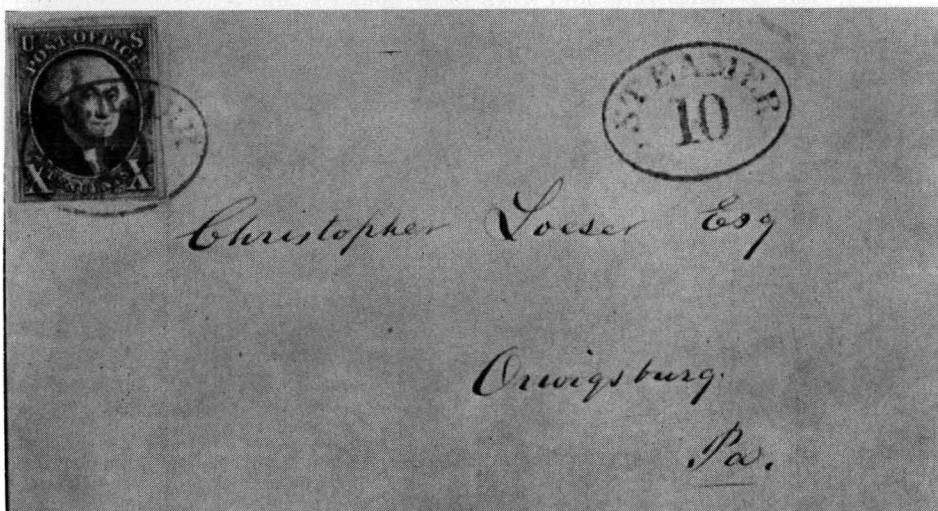 U S
POST OFFICE
X X
STEAMER
10
Christopher Loeser Esq
Orwigsburg.
Pa.